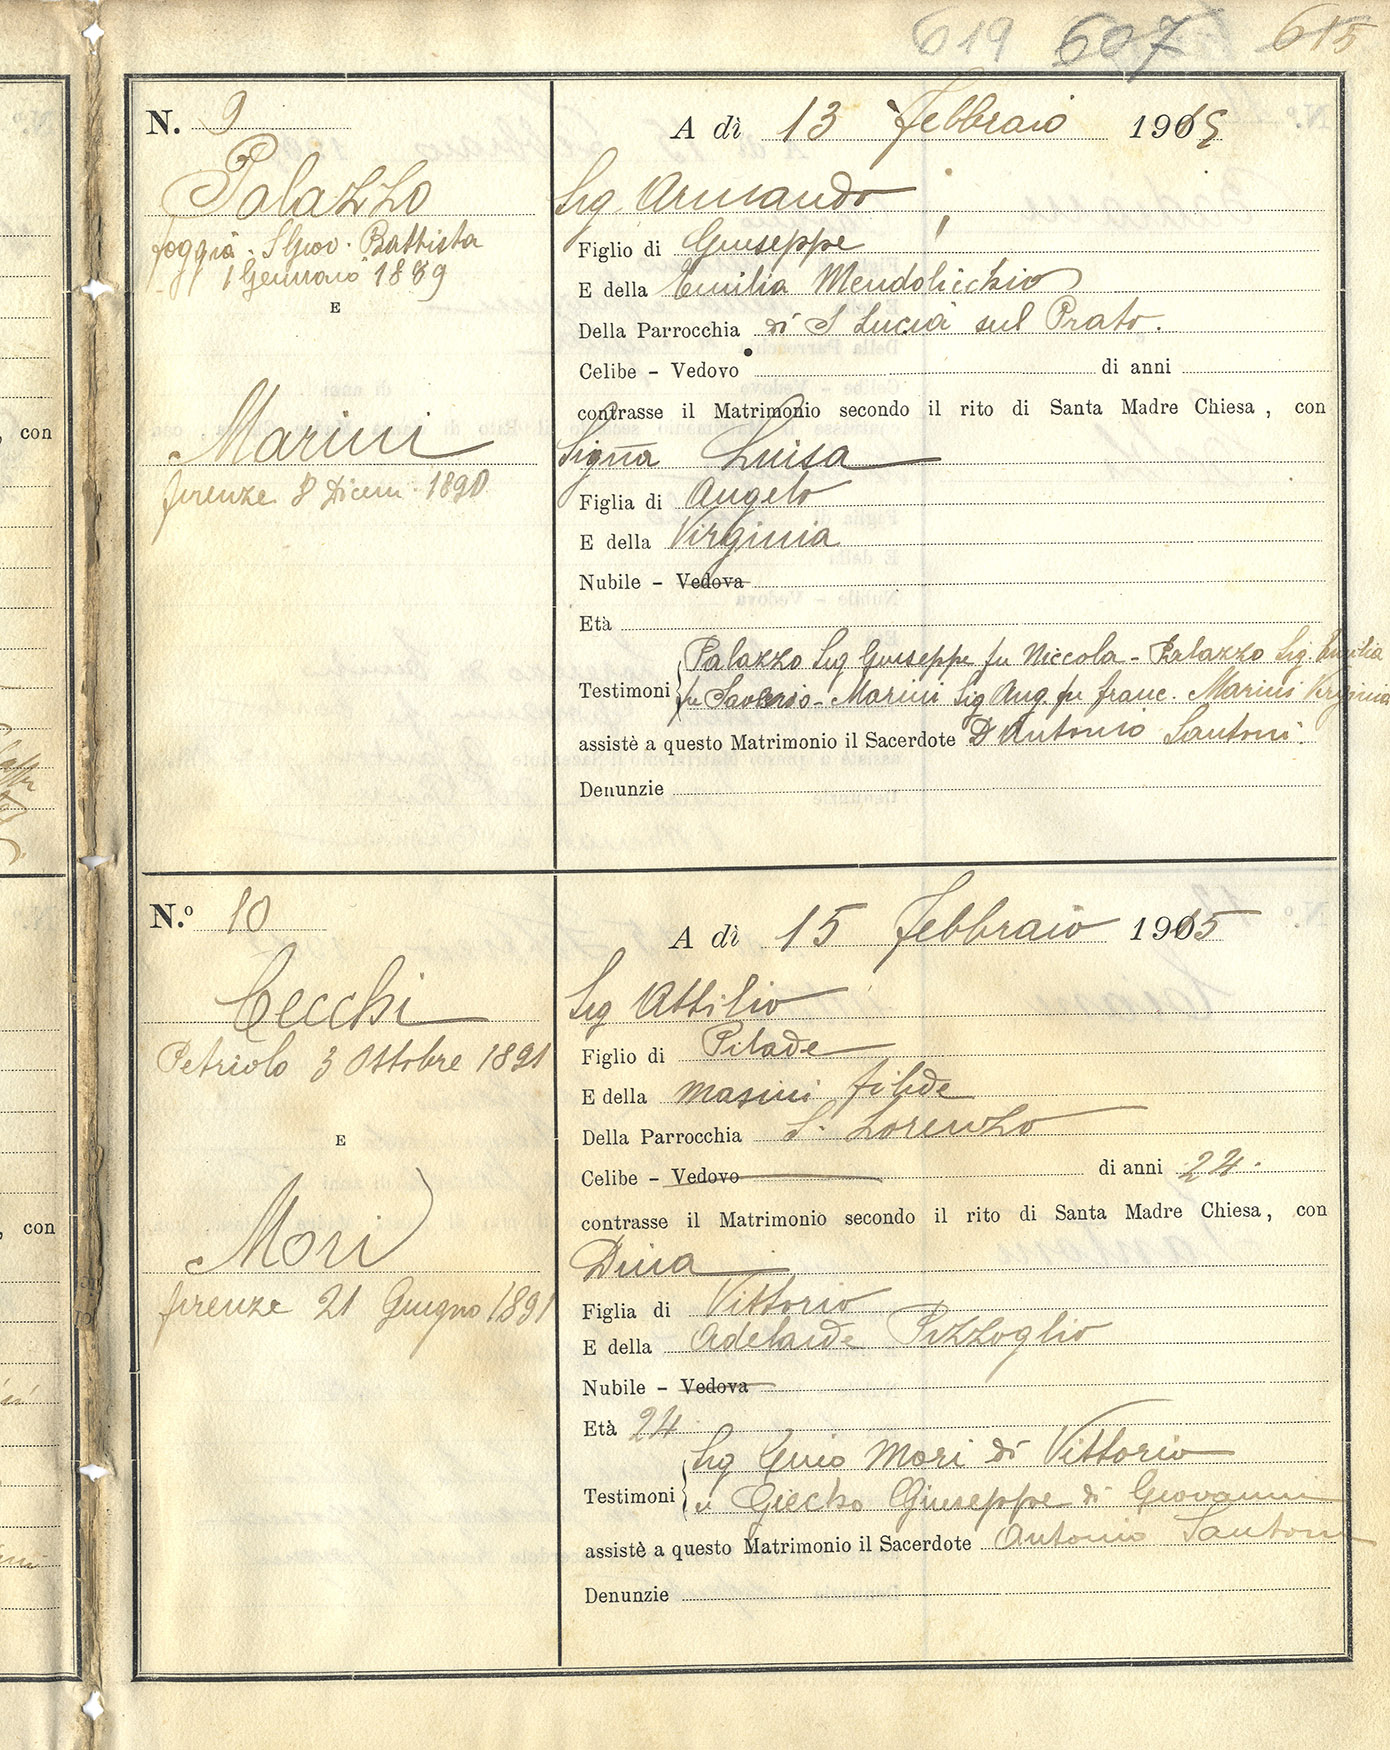 619 607 615
N. 9
A dì 13 Febbraio 1915
Palazzo
foggia - S Giov. Battista
1 Gennaio 1889
E
Marini
firenze 8 Dicem. 1890
Sig Armando
Figlio di Giuseppe
E della Emilia Mendolicchio
Della Parrocchia di S Lucia sul Prato.
Celibe - Vedovo di anni
contrasse il Matrimonio secondo il rito di Santa Madre Chiesa, con
Signa Luisa
Figlia di Angelo
E della Virginia
Nubile - Vedova
Età
Testimoni Palazzo Sig Giuseppe fu Niccola - Palazzo Sig. Emilia
fu Saverio - Marini Sig Ang. fu franc. Marini Virginia
assistè a questo Matrimonio il Sacerdote D Antonio Santoni.
Denunzie
N.º 10
A dì 15 Febbraio 1915
Cecchi
Petriolo 3 Ottobre 1891
E
Mori
firenze 21 Giugno 1891
Sig Attilio
Figlio di Pilade
E della Masini filide
Della Parrocchia S. Lorenzo
Celibe - Vedovo di anni 24.
contrasse il Matrimonio secondo il rito di Santa Madre Chiesa, con
Dina
Figlia di Vittorio
E della Adelaide Pizzoglio
Nubile - Vedova
Età 24
Testimoni Sig Mori di Vittorio
Giuseppe di Giovanni
assistè a questo Matrimonio il Sacerdote Antonio Santoni
Denunzie
con
con